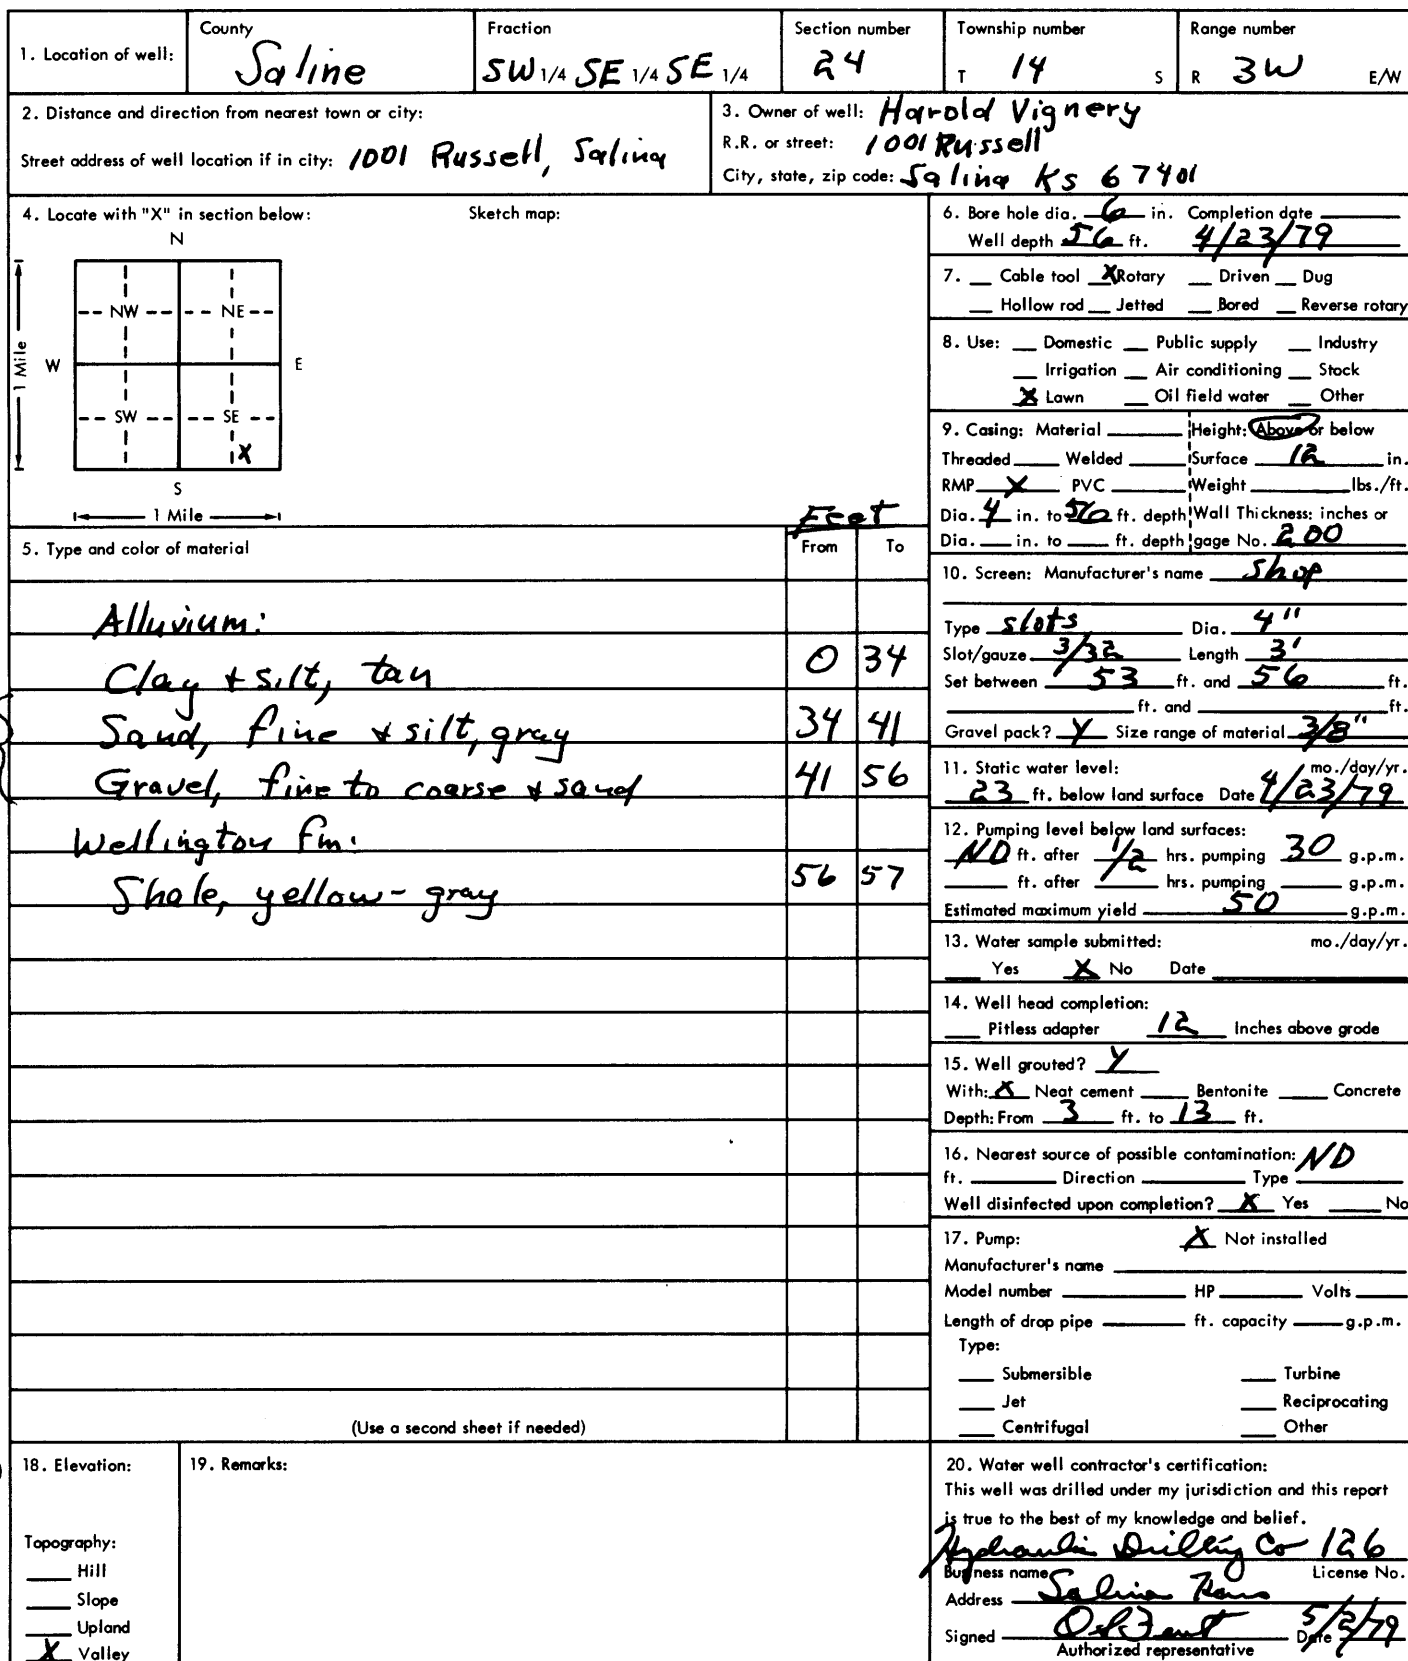 1. Location of well: County Saline Fraction SW 1/4 SE 1/4 SE 1/4 Section number 24 Township number T 14 S Range number R 3W E/W
2. Distance and direction from nearest town or city:
Street address of well location if in city: 1001 Russell, Salina
3. Owner of well: Harold Vignery
R.R. or street: 1001 Russell
City, state, zip code: Salina Ks 67401
4. Locate with "X" in section below: Sketch map:
N
NW NE
1 Mile W E
SW SE
X
S
1 Mile
Feet
5. Type and color of material From To
Alluvium:
Clay + silt, tan 0 34
Sand, fine + silt, gray 34 41
Gravel, fine to coarse + sand 41 56
Wellington fm:
Shale, yellow-gray 56 57
(Use a second sheet if needed)
6. Bore hole dia. 6 in. Completion date
Well depth 56 ft. 4/23/79
7. Cable tool X Rotary Driven Dug
Hollow rod Jetted Bored Reverse rotary
8. Use: Domestic Public supply Industry
Irrigation Air conditioning Stock
X Lawn Oil field water Other
9. Casing: Material Height: Above or below
Threaded Welded Surface 12 in.
RMP X PVC Weight lbs./ft.
Dia. 4 in. to 56 ft. depth Wall Thickness: inches or
Dia. in. to ft. depth gage No. 200
10. Screen: Manufacturer's name Shop
Type slots Dia. 4"
Slot/gauze 3/32 Length 3'
Set between 53 ft. and 56 ft.
ft. and ft.
Gravel pack? Y Size range of material 3/8"
11. Static water level: mo./day/yr.
23 ft. below land surface Date 4/23/79
12. Pumping level below land surfaces:
ND ft. after 1/2 hrs. pumping 30 g.p.m.
ft. after hrs. pumping g.p.m.
Estimated maximum yield 50 g.p.m.
13. Water sample submitted: mo./day/yr.
Yes X No Date
14. Well head completion:
Pitless adapter 12 Inches above grade
15. Well grouted? Y
With: X Neat cement Bentonite Concrete
Depth: From 3 ft. to 13 ft.
16. Nearest source of possible contamination: ND
ft. Direction Type
Well disinfected upon completion? X Yes No
17. Pump: X Not installed
Manufacturer's name
Model number HP Volts
Length of drop pipe ft. capacity g.p.m.
Type:
Submersible Turbine
Jet Reciprocating
Centrifugal Other
18. Elevation:
Topography:
Hill
Slope
Upland
X Valley
19. Remarks:
20. Water well contractor's certification:
This well was drilled under my jurisdiction and this report
is true to the best of my knowledge and belief.
Hydraulic Drilling Co 126
Business name License No.
Address Salina Kans
Signed Date 5/2/79
Authorized representative